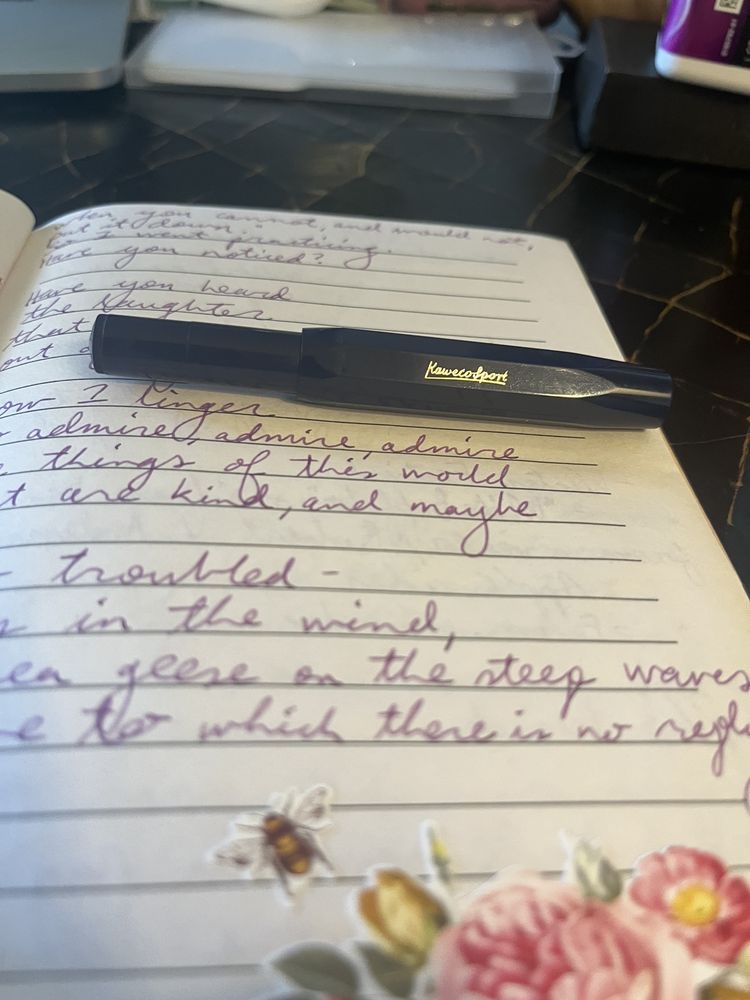 when you cannot, and would not,
put it down."
So I went practicing.
Have you noticed?
Have you heard
the laughter
that
out
KawecoSport
ow I linger
admire, admire, admire
things of this world
t are kind, and maybe
troubled -
in the mind,
ea geese on the steep waves
e to which there is no repl